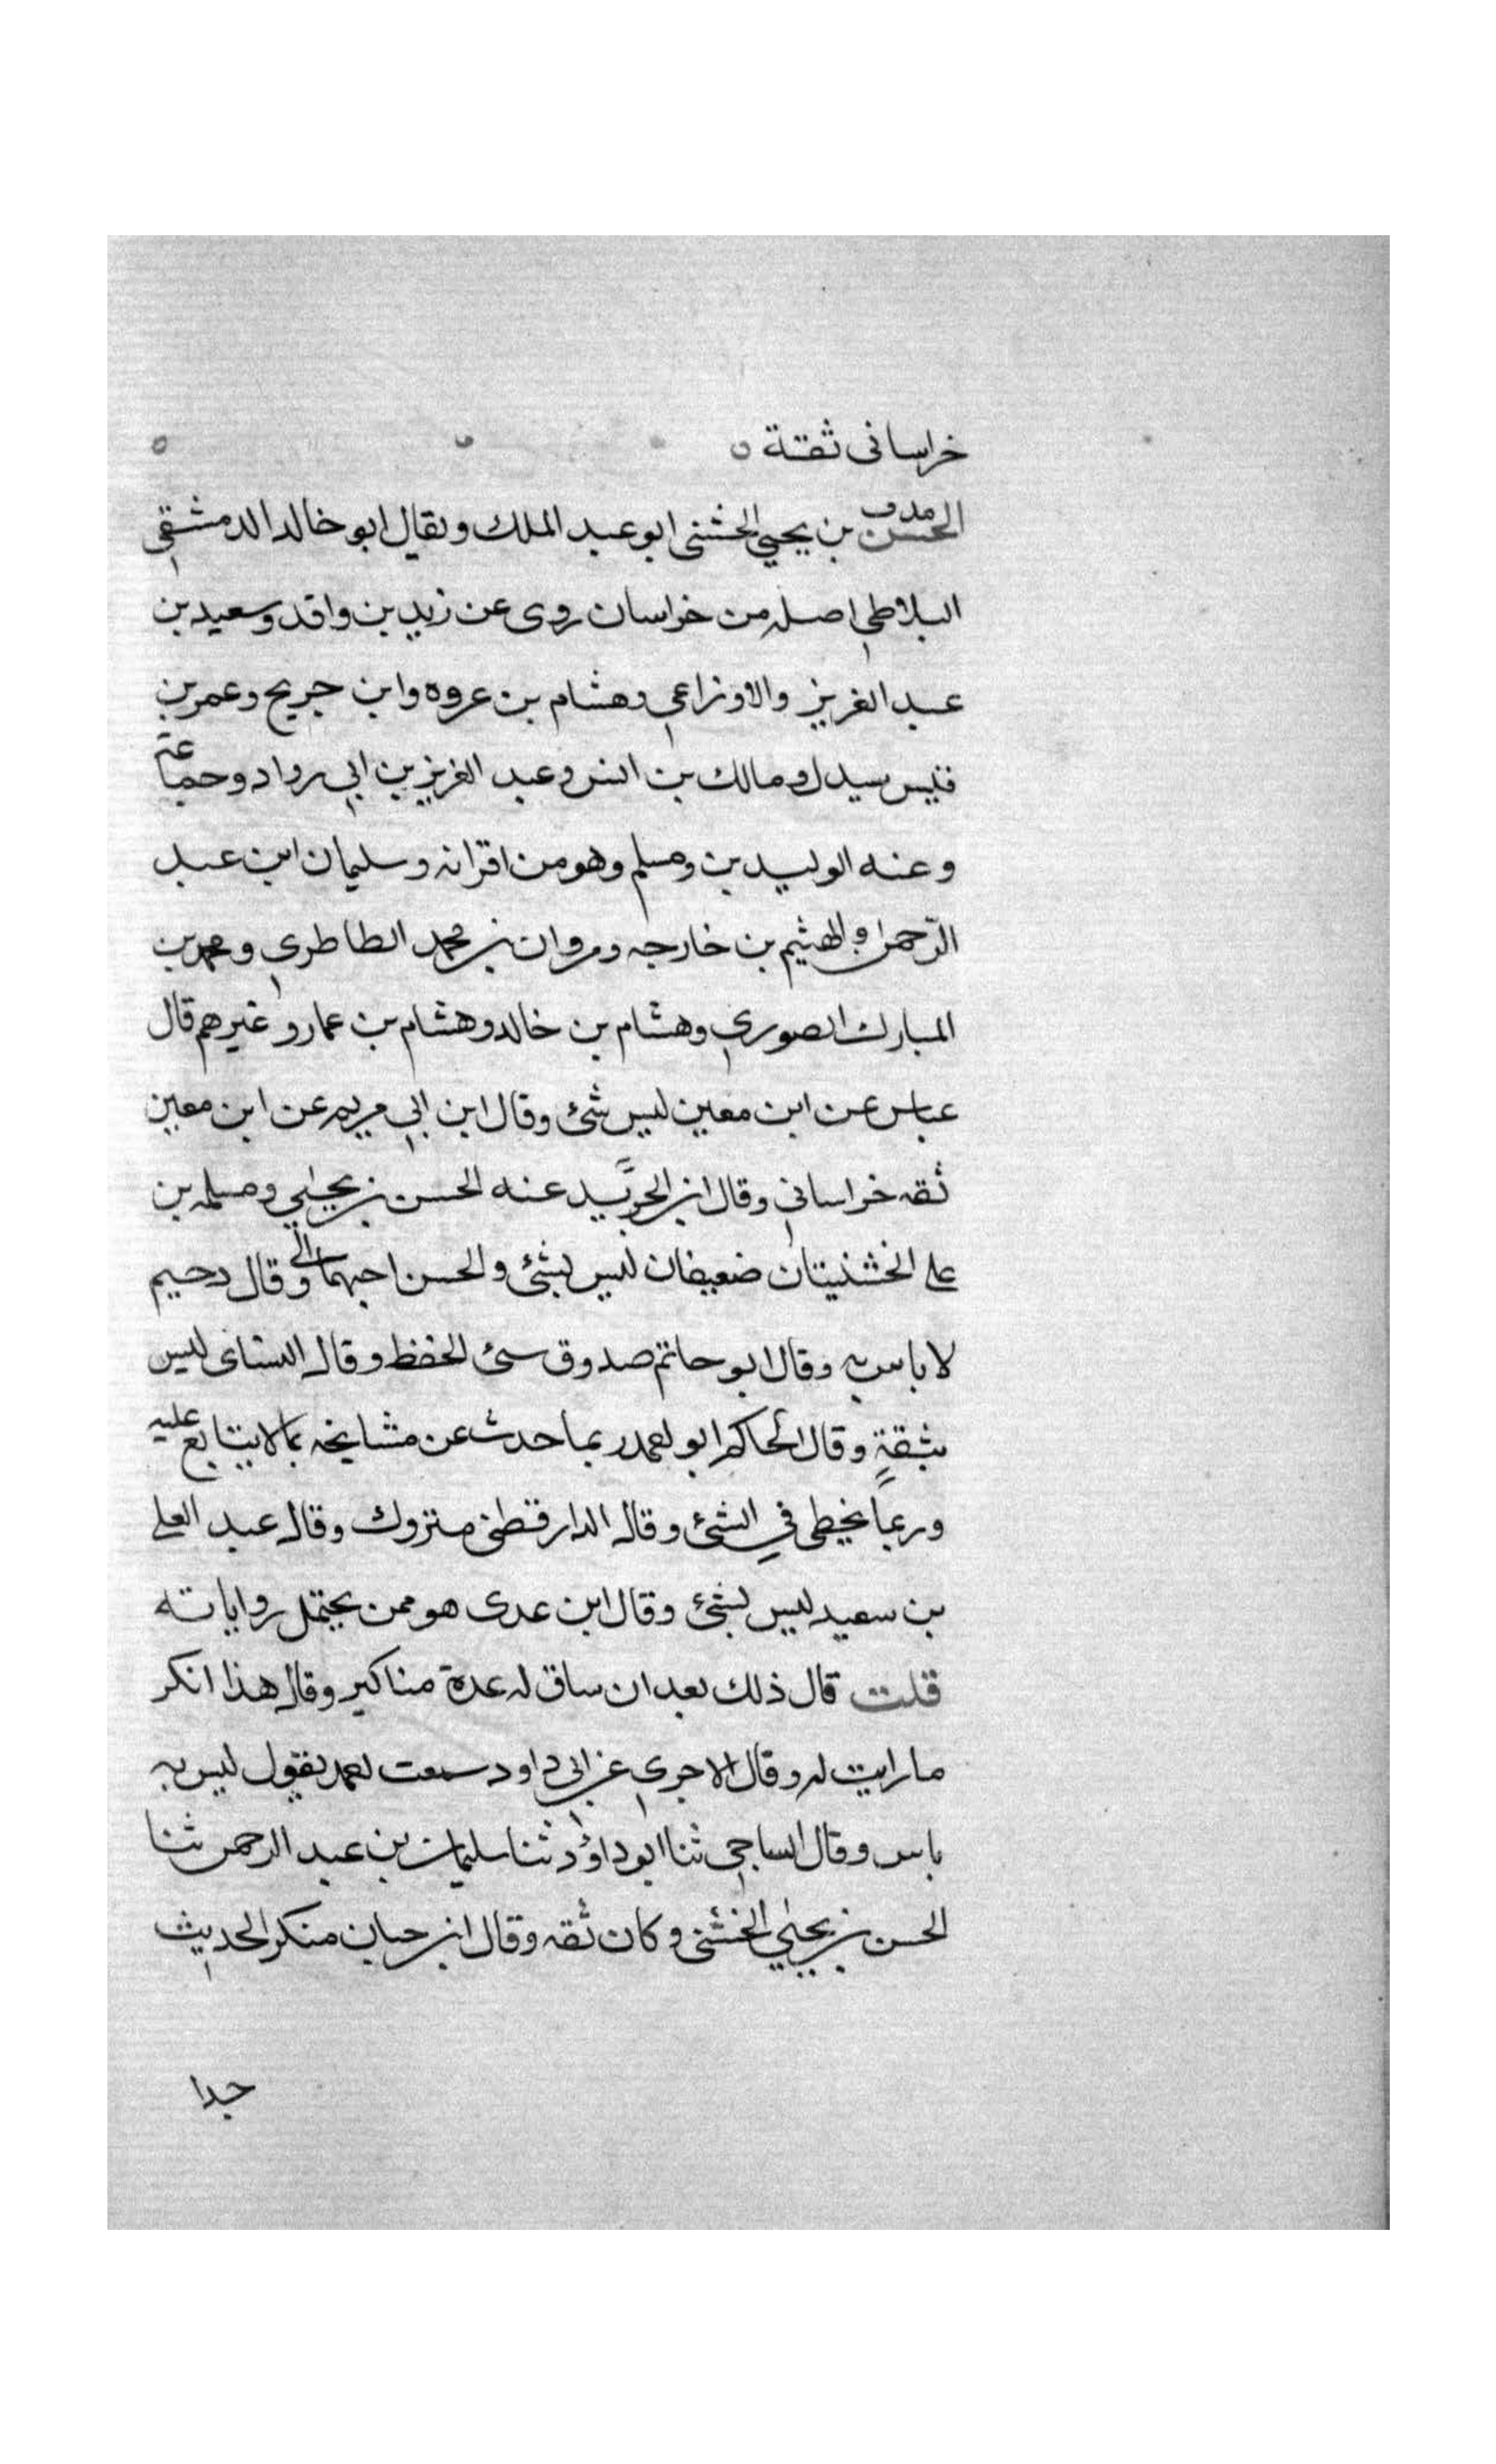 خراسانى ثقة ٥
الحسن مدق بن يحيي الخشنى ابو عبد الملك ويقال ابو خالد الدمشقي
البلاطي اصله من خراسان روى عن زيد بن واقد وسعيد بن
عبد العزيز والاوزاعي وهشام بن عروه وابن جريح وعمر بن
قيس سيدل ومالك بن انس وعبد العزيز بن ابي رواد وجماعة
وعنه الوليد بن ومسلم وهو من اقرانه وسليمان ابن عبد
الرّحمن والهثيم بن خارجه ومروان بن محمد الطاطري ومحمد بن
المبارك الصوري وهشام بن خالد وهشام بن عمار وغيرهم قال
عباس عن ابن معين ليس شئ وقال ابن ابي مريم عن ابن معين
ثقه خراساني وقال ابن الجنيد عنه الحسن بن يحيي ومسلمه بن
على الخشنيتان ضعيفان ليس بشئ والحسن احبهما الي وقال دحيم
لا باس به وقال ابو حاتم صدوق سئ الحفظ وقال النسائى ليس
بثقةٍ وقال الحاكم ابو احمد ربما حدث عن مشايخه بما لا يتابع عليه
وربماً يخطى في الشئ وقال الدارقطنى متروك وقال عبد الغنى
بن سعيد ليس بشئ وقال ابن عدى هو ممن يحتمل رواياته
قلت قال ذلك بعد ان ساق له عدة مناكير وقال هذا انكر
ما رايت له وقال الاجري عن ابي داود سمعت احمد يقول ليس به
باس وقال الساجي ثنا ابو داؤد ثنا سليمان بن عبد الرحمن ثنا
الحسن بن يحيي الخشنى وكان ثقه وقال ابن حبان منكر الحديث
جدا